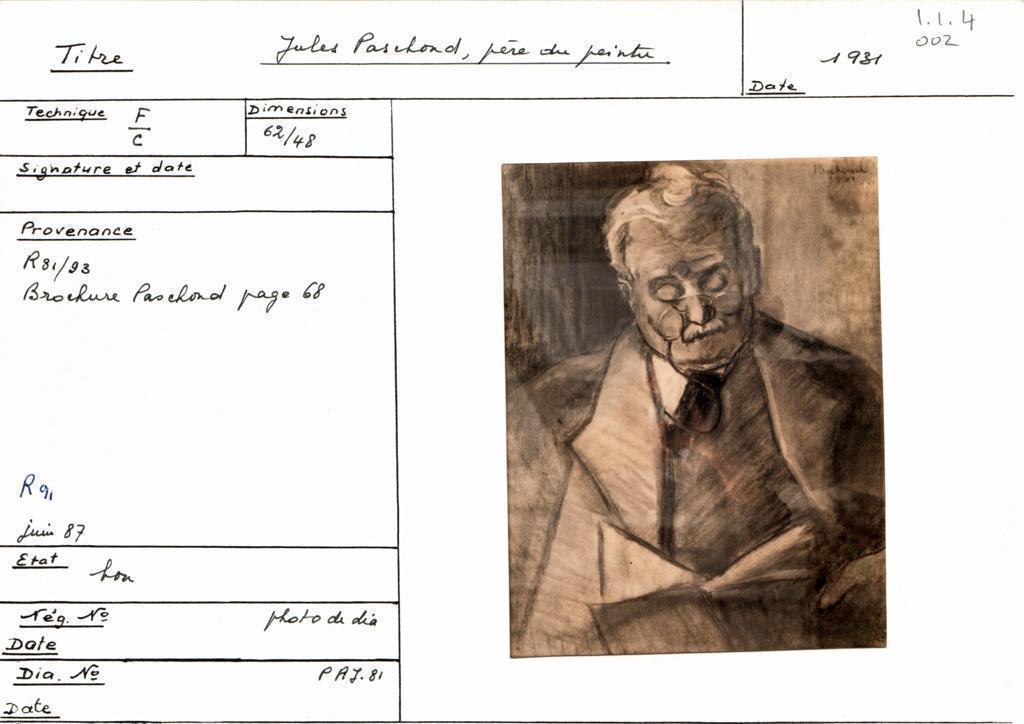 Titre
Jules Paschoud, père du peintre
1931
Date
1.1.4
002
Technique F/C
Dimensions
62/48
Signature et date
Provenance
R81/93
Brochure Paschoud page 68
R 91
juin 87
Etat bon
Nég. No photo de dia
Date
Dia. No PAJ.81
Date
Paschoud
1931